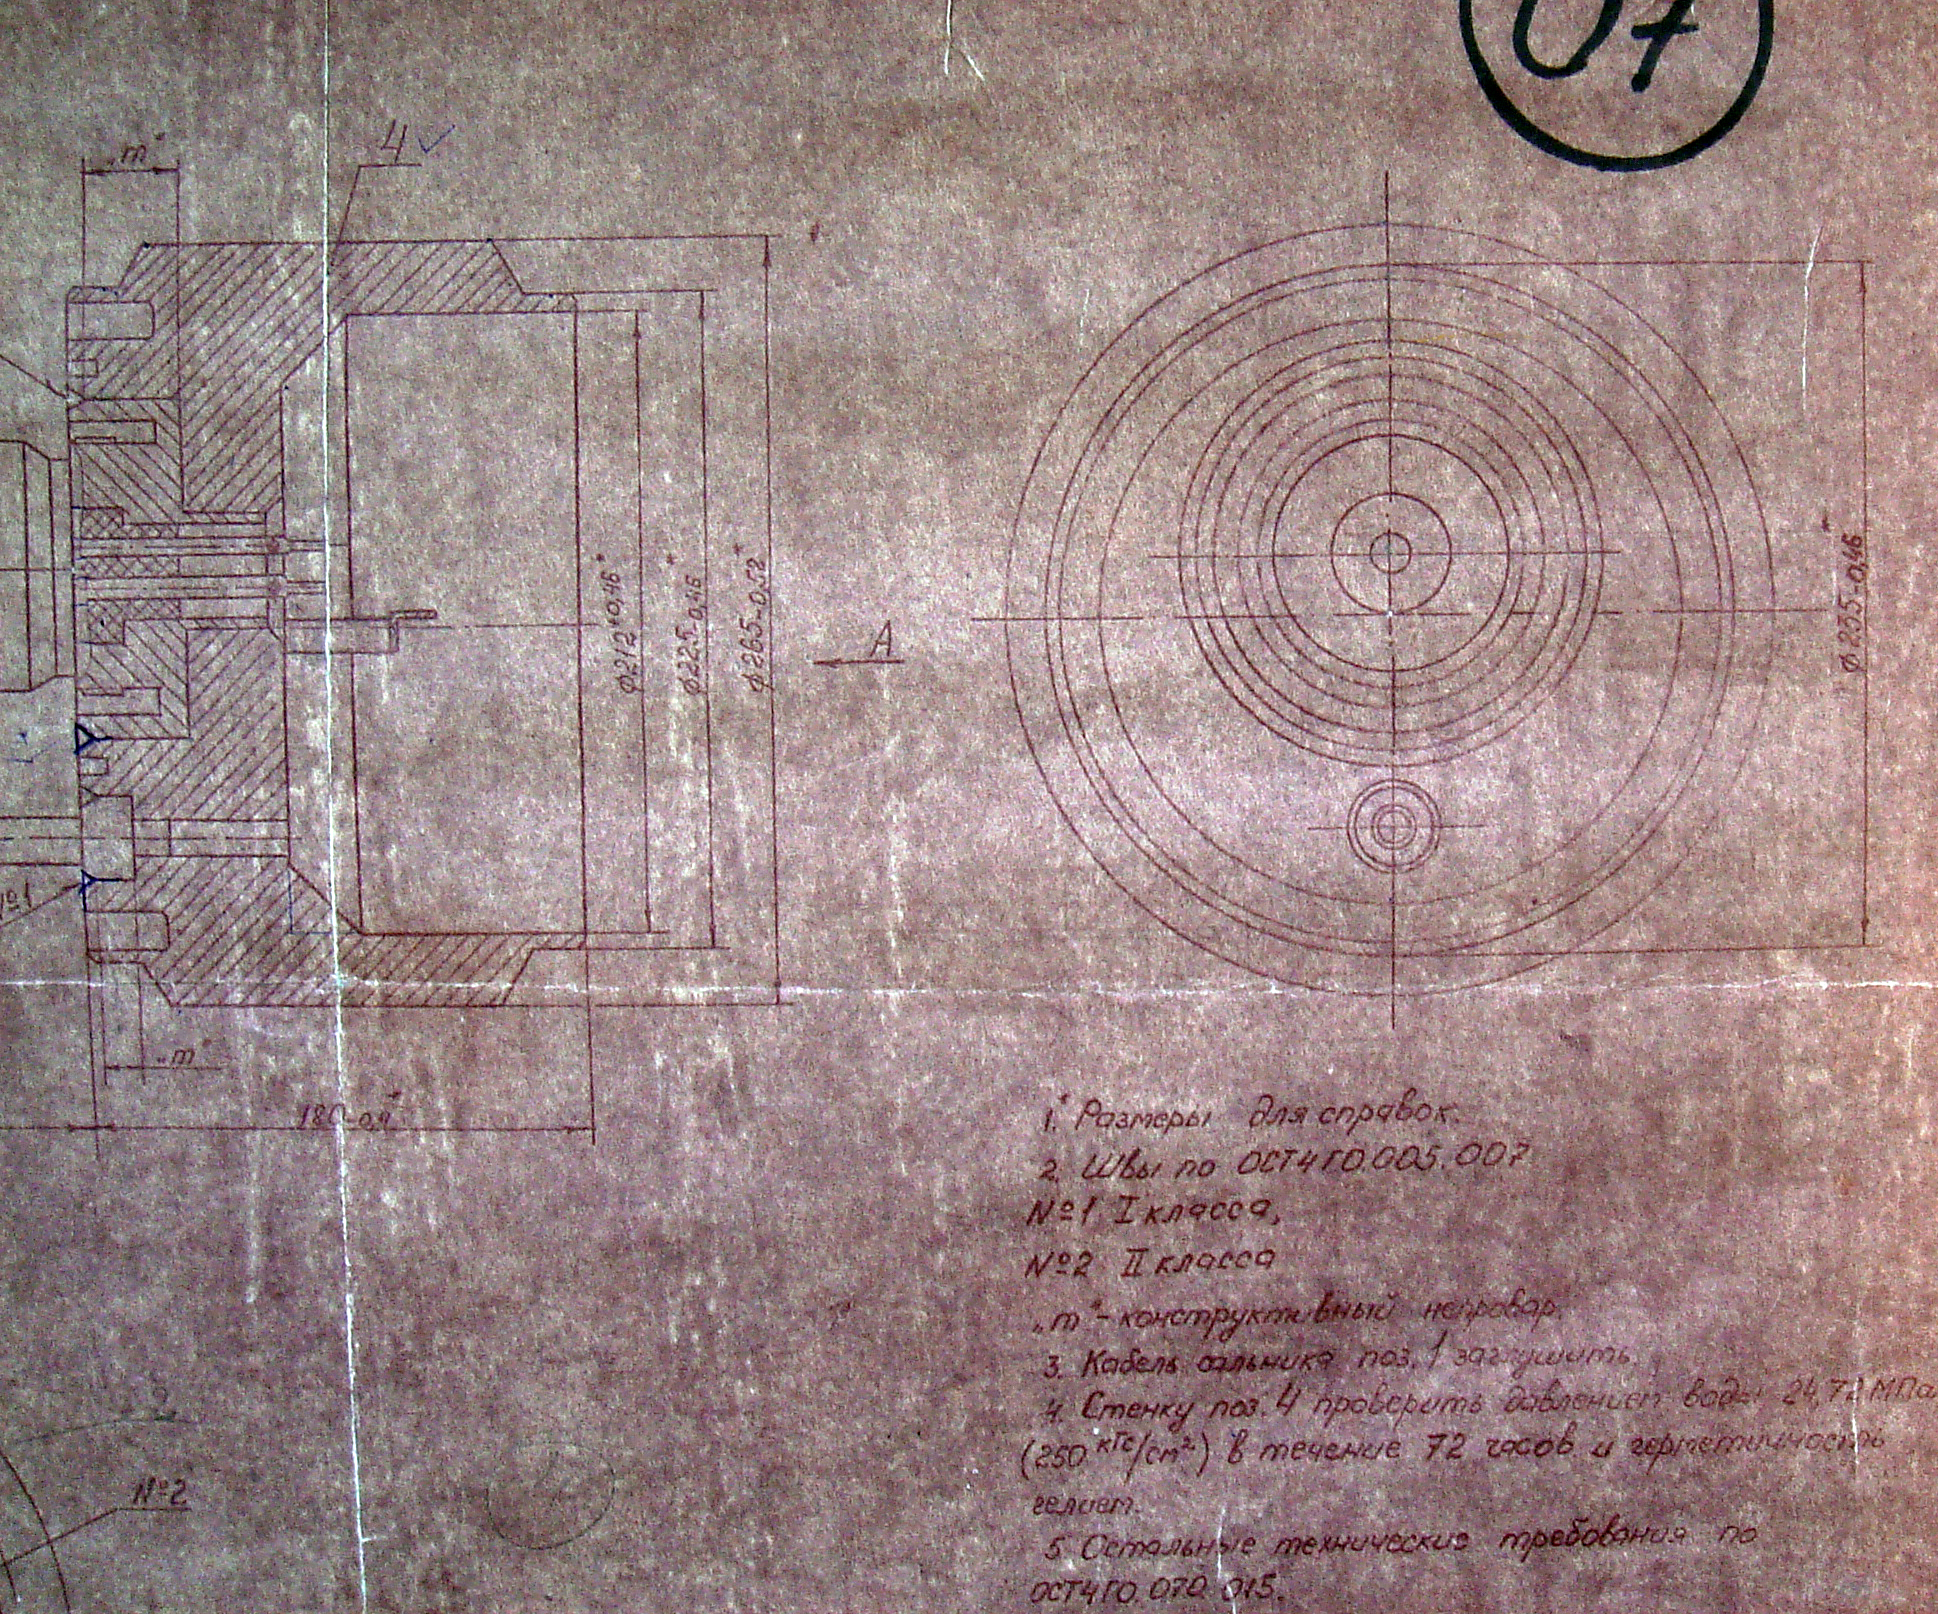 07
„m"
4
⌀212⁺⁰,⁴⁶*
⌀225-0,46*
⌀265-0,52*
А
⌀235-0,46*
№1
„m"
180-0,4*
1.* Размеры для справок.
2. Швы по ОСТ4ГО.005.007
№1 I класса,
№2 II класса
„m" - конструктивный непровар.
3. Кабель сальника поз. 1 заглушить.
4. Стенку поз. 4 проверить давлением воды 24,72 МПа
(250 кгс/см²) в течение 72 часов и герметичность
гелием.
5. Остальные технические требования по
ОСТ4ГО.070.015.
2
№2